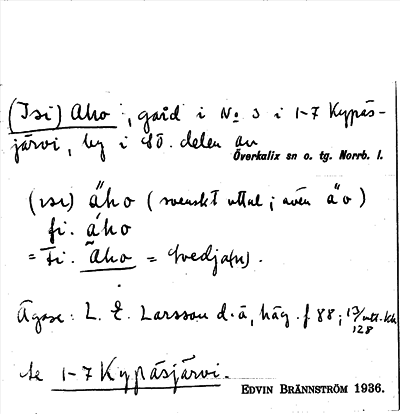 (Isi) Aho, gård i No 3 i 1-7 Kypäs-
järvi, by i sö. delen av
Överkalix sn o. tg. Norrb. l.
(ısı) äho (svenskt uttal; även äo)
fi. áho
= fi. Aho = svedja(n).
Ägare: L. E. Larsson d.ä, häg. f 88; 17/
128
se 1-7 Kypäsjärvi.
EDVIN BRÄNNSTRÖM 1936.